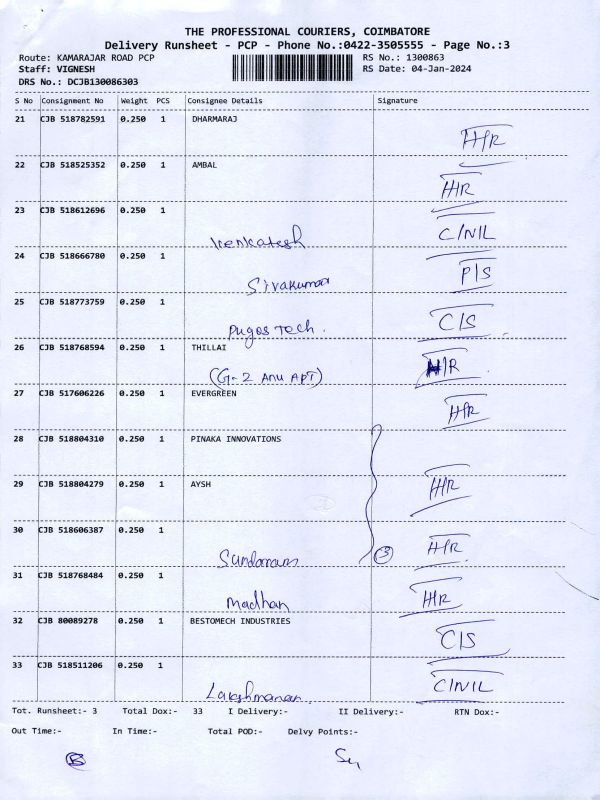 THE PROFESSIONAL COURIERS, COIMBATORE
Delivery Runsheet - PCP - Phone No.:0422-3505555 - Page No.:3
Route: KAMARAJAR ROAD PCP
RS No.: 1300863
Staff: VIGNESH
RS Date: 04-Jan-2024
DRS No.: DCJB130086303
S No Consignment No Weight PCS Consignee Details Signature
21 CJB 518782591 0.250 1 DHARMARAJ
H/R
22 CJB 518525352 0.250 1 AMBAL
H/R
23 CJB 518612696 0.250 1
Venkatesh C/NIL
24 CJB 518666780 0.250 1
Sivakumar P/S
25 CJB 518773759 0.250 1
Pugos Tech. C/S
26 CJB 518768594 0.250 1 THILLAI
(G-2 Anu APT) H/R
27 CJB 517606226 0.250 1 EVERGREEN
H/R
28 CJB 518804310 0.250 1 PINAKA INNOVATIONS
29 CJB 518804279 0.250 1 AYSH
H/R
30 CJB 518606387 0.250 1
Sundaram 3 H/R
31 CJB 518768484 0.250 1
Madhan H/R
32 CJB 80089278 0.250 1 BESTOMECH INDUSTRIES
C/S
33 CJB 518511206 0.250 1
Lakshmanan C/NIL
Tot. Runsheet:- 3 Total Dox:- 33 I Delivery:- II Delivery:- RTN Dox:-
Out Time:- In Time:- Total POD:- Delvy Points:-